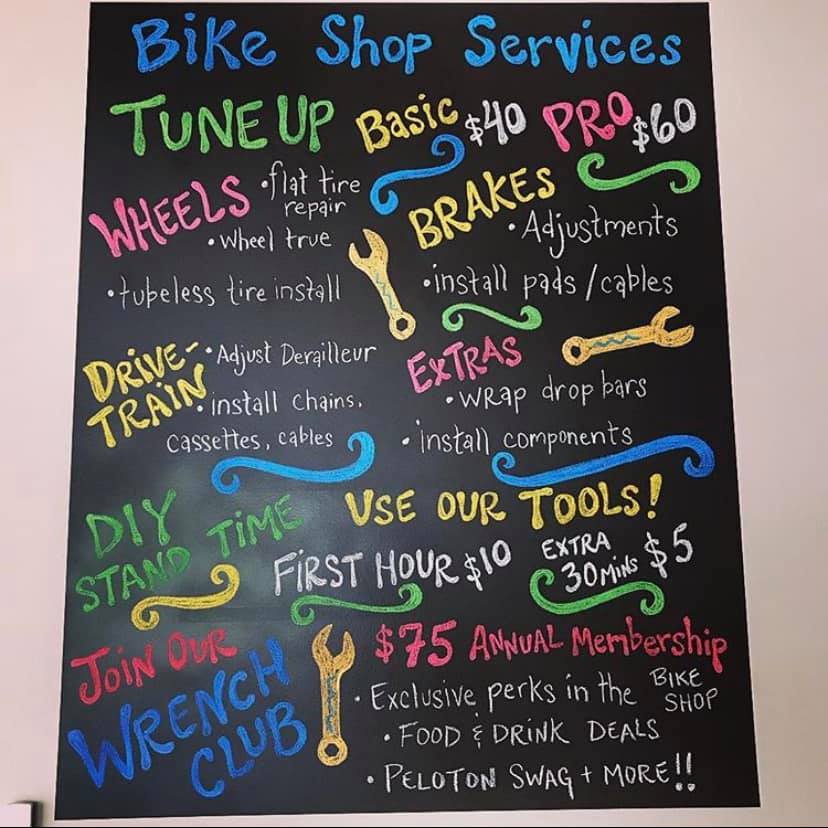 Bike Shop Services
TUNE UP Basic $40 PRO $60
WHEELS
•flat tire
repair
•wheel true
•tubeless tire install
BRAKES
•Adjustments
•install pads/cables
DRIVE-
TRAIN
•Adjust Derailleur
•install chains,
cassettes, cables
EXTRAS
•wrap drop bars
•install components
DIY
STAND TIME
USE OUR TOOLS!
FIRST HOUR $10
EXTRA
30 MINS $5
JOIN OUR
WRENCH
CLUB
$75 ANNUAL Membership
•Exclusive perks in the BIKE
SHOP
•FOOD & DRINK DEALS
•PELOTON SWAG + MORE!!